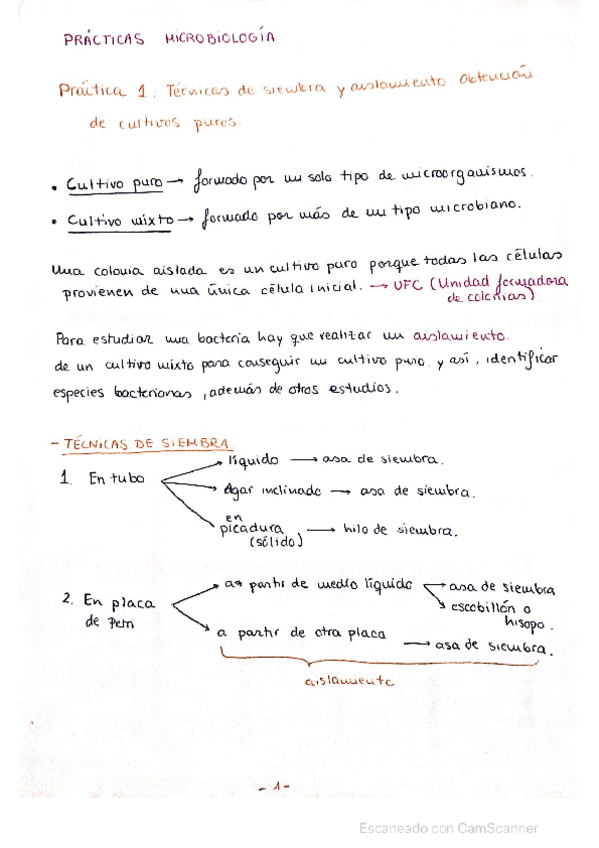 PRÁCTICAS MICROBIOLOGÍA
Práctica 1: Técnicas de siembra y aislamiento. Obtención
de cultivos puros.
• Cultivo puro → formado por un solo tipo de microorganismos.
• Cultivo mixto → formado por más de un tipo microbiano.
Una colonia aislada es un cultivo puro porque todas las células
provienen de una única célula inicial. → UFC (Unidad formadora
de colonias)
Para estudiar una bacteria hay que realizar un aislamiento.
de un cultivo mixto para conseguir un cultivo puro y así, identificar
especies bacterianas, además de otros estudios.
- TÉCNICAS DE SIEMBRA
1. En tubo
líquido → asa de siembra.
Agar inclinado → asa de siembra.
en
picadura → hilo de siembra.
(sólido)
2. En placa
de Petri
a partir de medio líquido
asa de siembra
escobillón o
hisopo.
a partir de otra placa → asa de siembra.
aislamiento
- 1 -
Escaneado con CamScanner